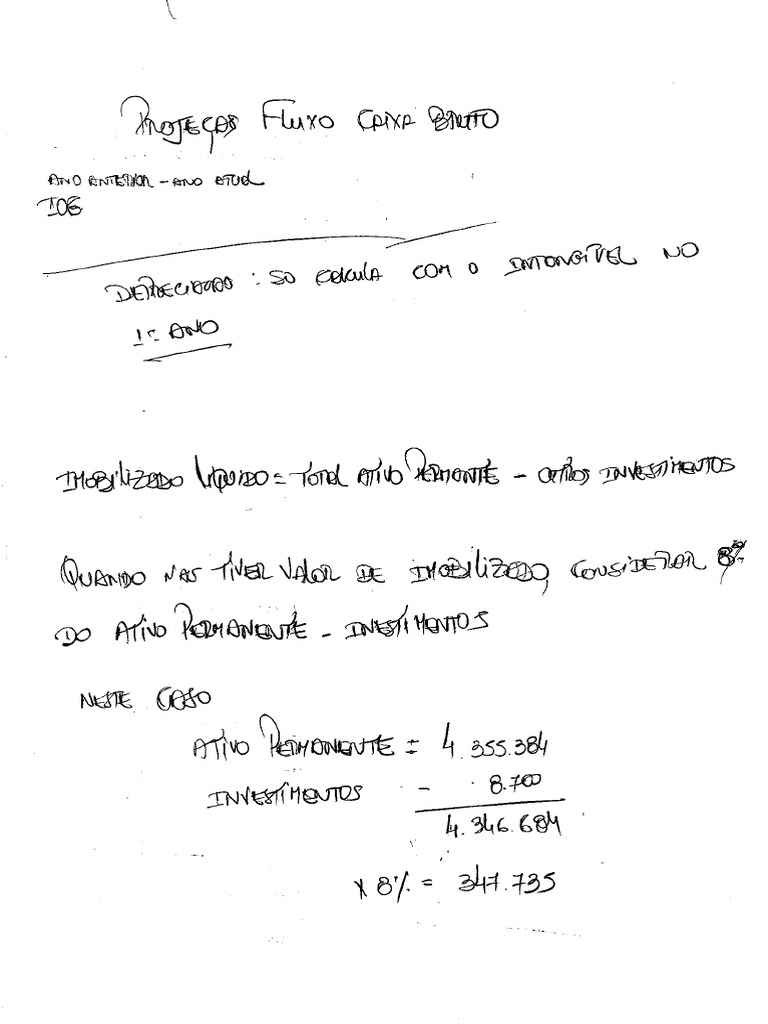 PROJEÇÃO FLUXO CAIXA BRUTO
ANO ANTERIOR - ANO ATUAL
IOG
DEPRECIAÇÃO : SO CALCULA COM O INTANGÍVEL NO
1º ANO
IMOBILIZADO LÍQUIDO = TOTAL ATIVO PERMANENTE - OUTROS INVESTIMENTOS
QUANDO NÃO TIVER VALOR DE IMOBILIZADO, CONSIDERAR 8%
DO ATIVO PERMANENTE - INVESTIMENTOS
NESTE CASO
ATIVO PERMANENTE = 4.355.384
INVESTIMENTOS - 8.700
4.346.684
X 8% = 347.735